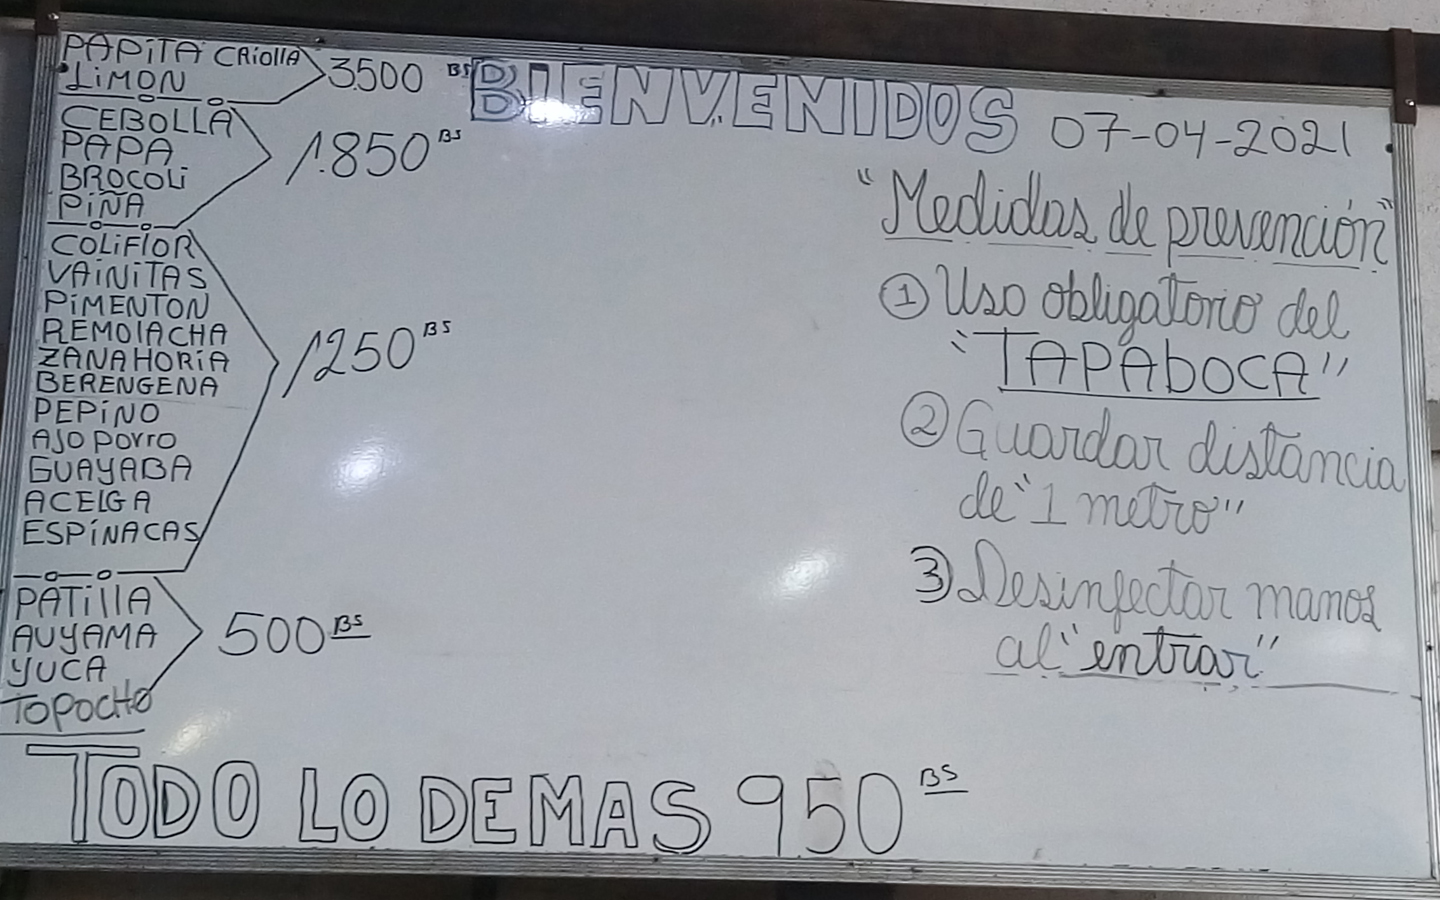 PAPiTA CRiollA
LiMON
3500 BS
CEBOLLA
PAPA
BROCOLi
PiÑA
1.850 BS
COLiFlOR
VAiNiTAS
PiMENTON
REMOlACHA
ZANAHORiA
BERENGENA
PEPiNO
AJO POrrO
GUAYABA
ACElGA
ESPiNACAS
1250 BS
PATillA
AUYAMA
YUCA
TOPOCHO
500 BS
TODO LO DEMAS 950 BS
BIENVENIDOS 07-04-2021
"Medidas de prevención"
1 Uso obligatorio del
"TAPAbOCA"
2 Guardar distancia
de "1 metro"
3 Desinfectar manos
al "entrar"